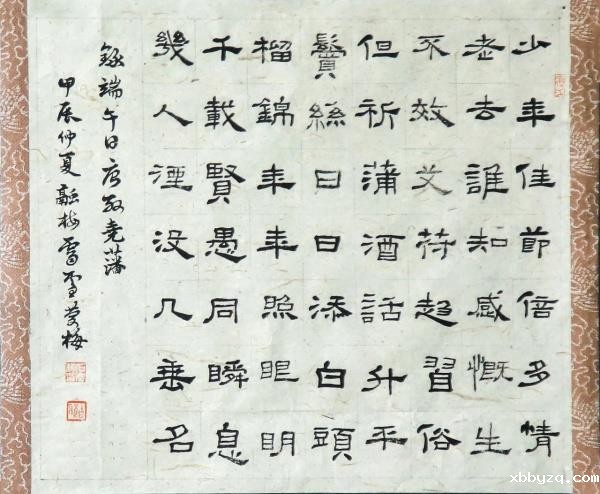 少年佳節倍多情
老去誰知感慨生
不效艾符趨習俗
但祈蒲酒話升平
鬢絲日日添白頭
榴錦年年照眼明
千載賢愚同瞬息
幾人湮沒几垂名
錄端午日唐殷堯藩
甲辰仲夏融梅
xbbyzq.com